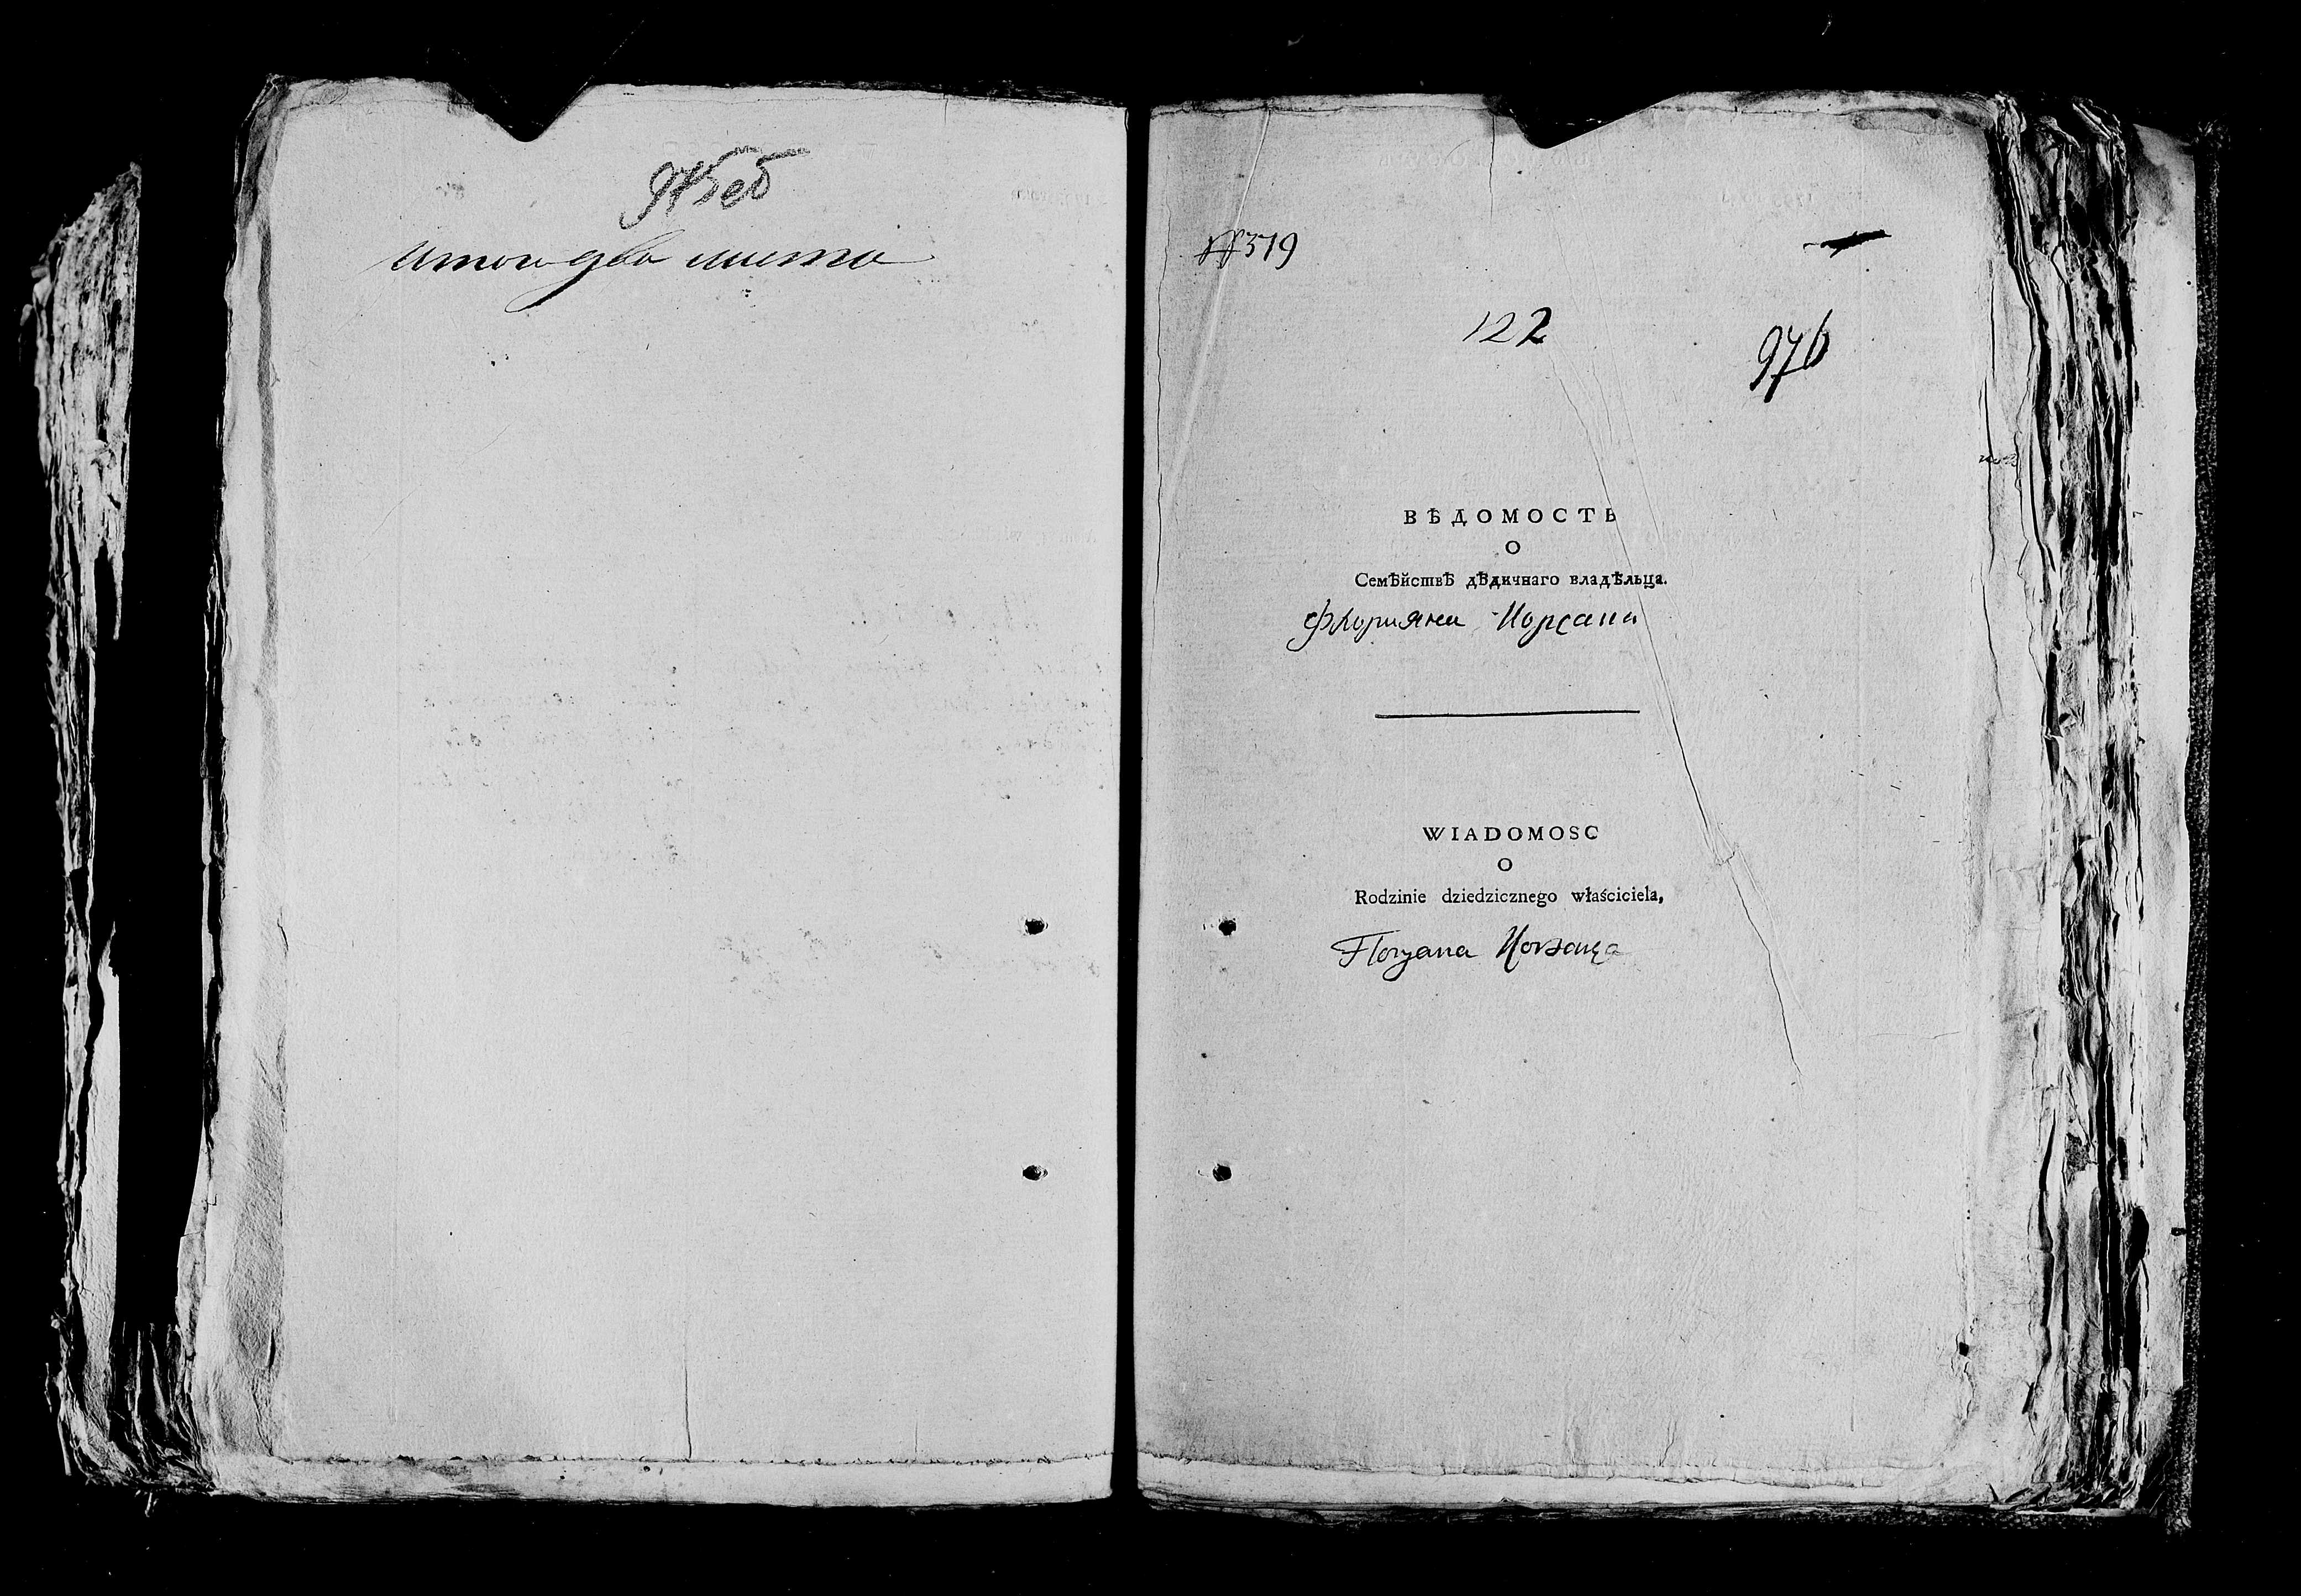 итого два листа
№ 319
122
976
ВѢДОМОСТЬ
О
Семѣйствѣ дѣдичнаго владѣльца.
Флорияна Корсака
WIADOMOSC
O
Rodzinie dziedzicznego właściciela,
Floryana Korsaka